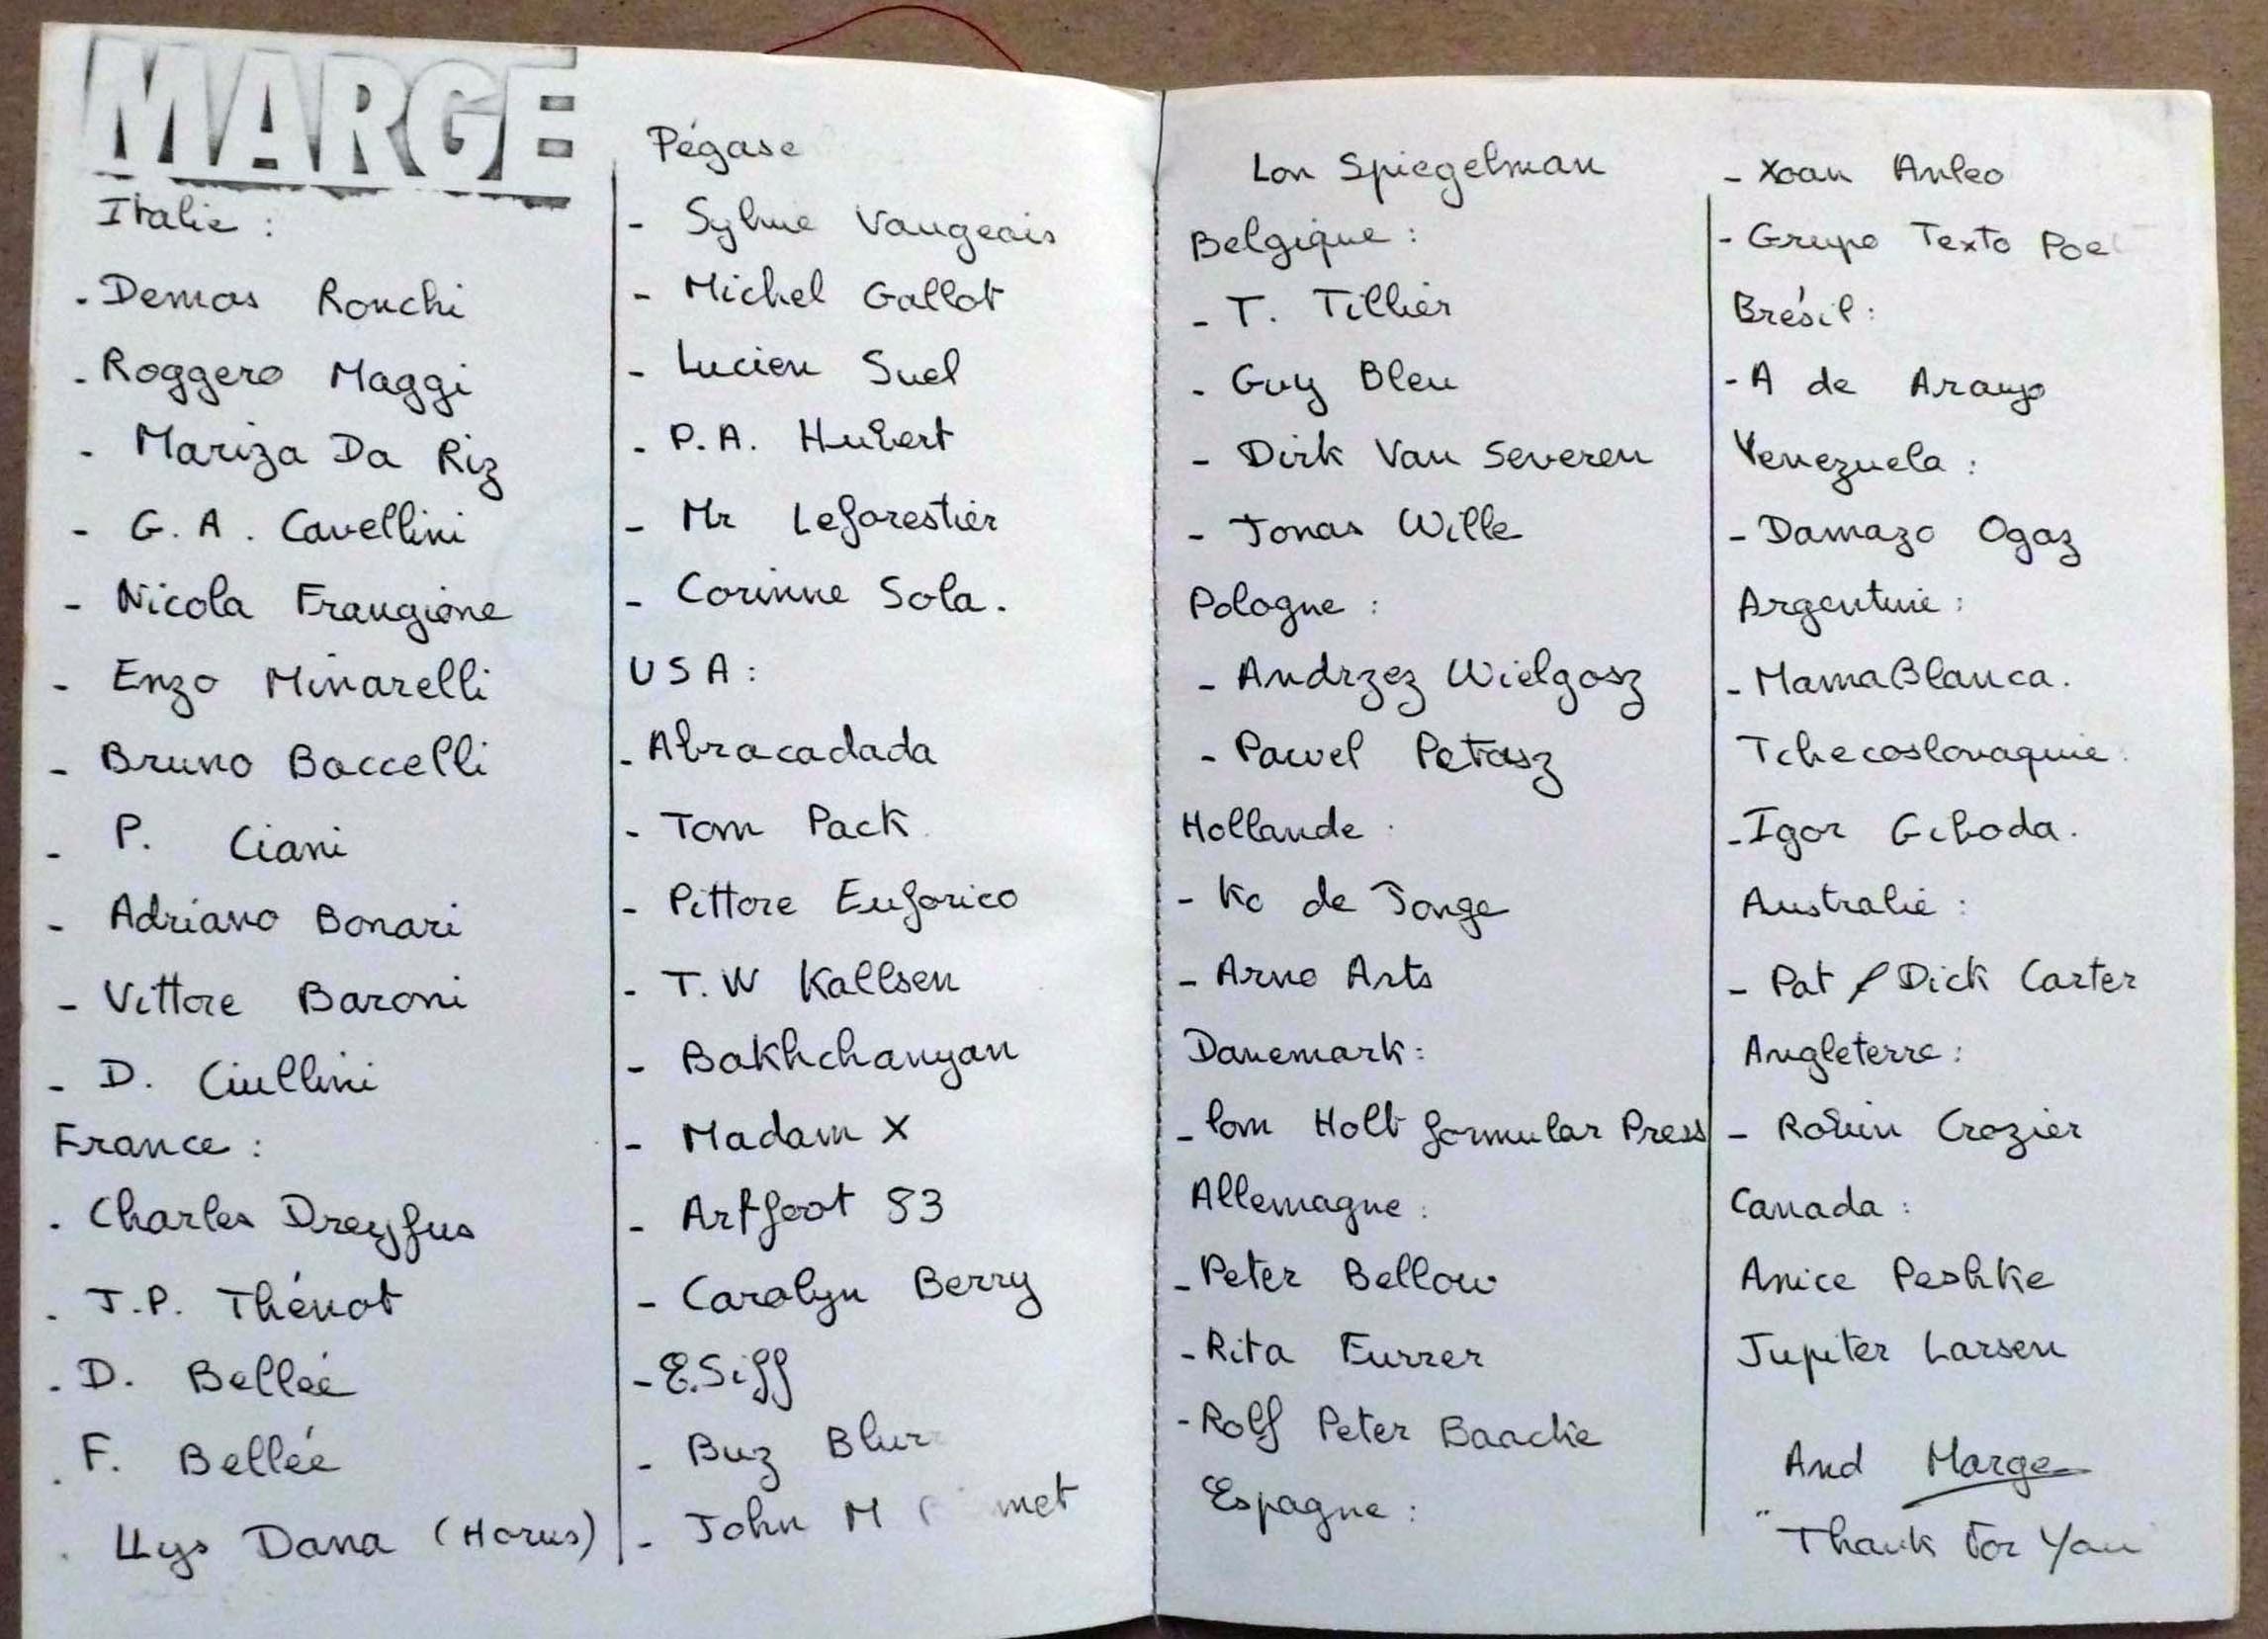 MARGE
Italie :
- Demos Ronchi
- Roggero Maggi
- Mariza Da Riz
- G. A. Cavellini
- Nicola Frangione
- Enzo Minarelli
- Bruno Baccelli
- P. Ciani
- Adriano Bonari
- Vittore Baroni
- D. Ciullini
France :
. Charles Dreyfus
. J.P. Thénot
. D. Bellée
. F. Bellée
. Llys Dana (Horus)
Pégase
- Sylvie Vaugeois
- Michel Gallot
- Lucien Suel
- P.A. Hubert
- Mr Leforestier
- Corinne Sola.
USA :
- Abracadada
- Tom Pack
- Pittore Euforico
- T.W Kallsen
- Bakhchanyan
- Madam X
- Artfoot 83
- Carolyn Berry
- E. Siff
- Buz Blurr
- John M met
Lon Spiegelman
Belgique :
- T. Tillier
- Guy Bleu
- Dirk Van Severen
- Jonas Wille
Pologne :
- Andrzez Wielgosz
- Pawel Petasz
Hollande :
- Ko de Jonge
- Arno Arts
Danemark :
- Holt formular Press
Allemagne :
- Peter Bellow
- Rita Furrer
- Rolf Peter Baacke
Espagne :
- Xoan Anleo
- Grupo Texto Poe
Brésil :
- A de Araujo
Venezuela :
- Damazo Ogaz
Argentine :
- MamaBlanca.
Tchecoslovaquie :
- Igor
Australie :
- Pat / Dick Carter
Angleterre :
- Robin Crozier
Canada :
Anice Peshke
Jupiter Larsen
And Marge
"Thank for You